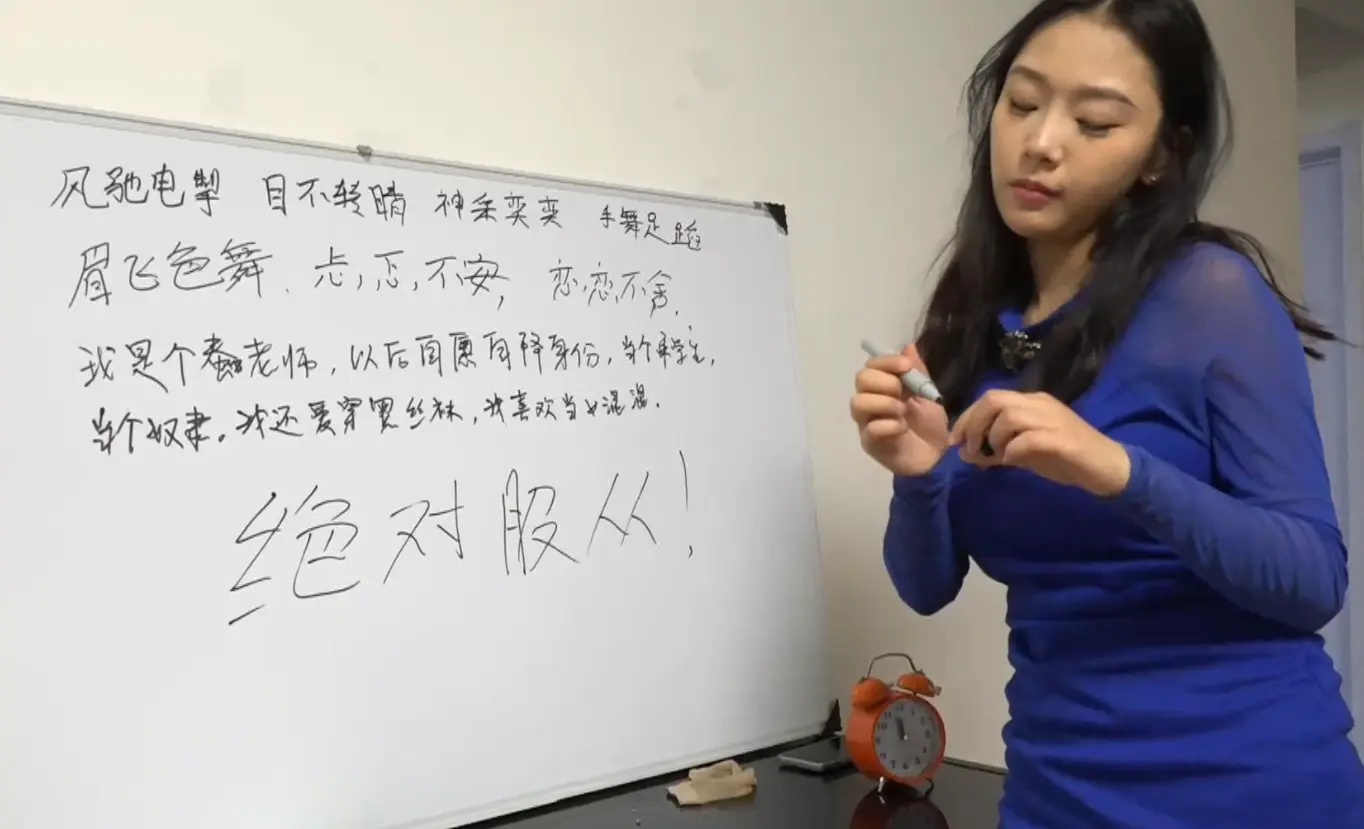 风驰电掣 目不转睛 神采奕奕 手舞足蹈
眉飞色舞、忐忑不安, 恋恋不舍.
我是个蠢老师,以后自愿自降身份,当个学生,
当个奴隶。我还爱穿黑丝袜,我喜欢当女混混.
绝对服从!